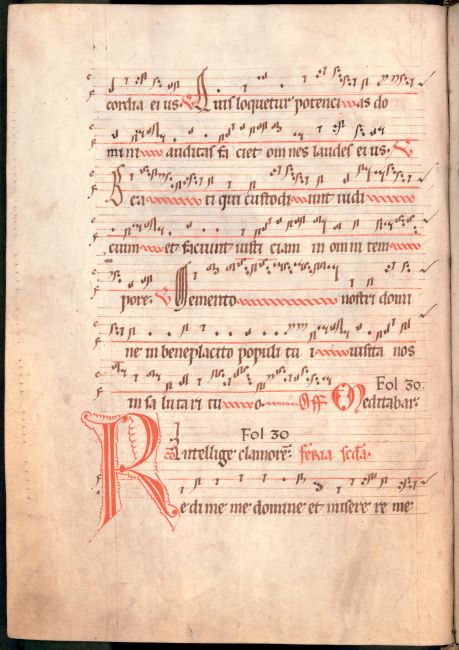 cordia ei us. V Quis loquetur potenci as do
mini auditas fa ciet om nes laudes ei us. V
Bea ti qui custodi unt iudi
cium et faciunt iusti ciam in om ni tem
pore. V Memento nostri domi
ne in beneplacito populi tu i visita nos
in sa lu tari tu o. Off Meditabar. Fol 30.
Co Intellige clamorē. Fol 30 feria scďa.
Redi me me domine et misere re me